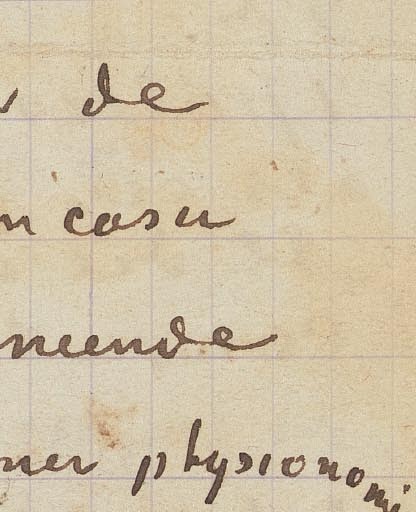 de
n casu
ner physionomi